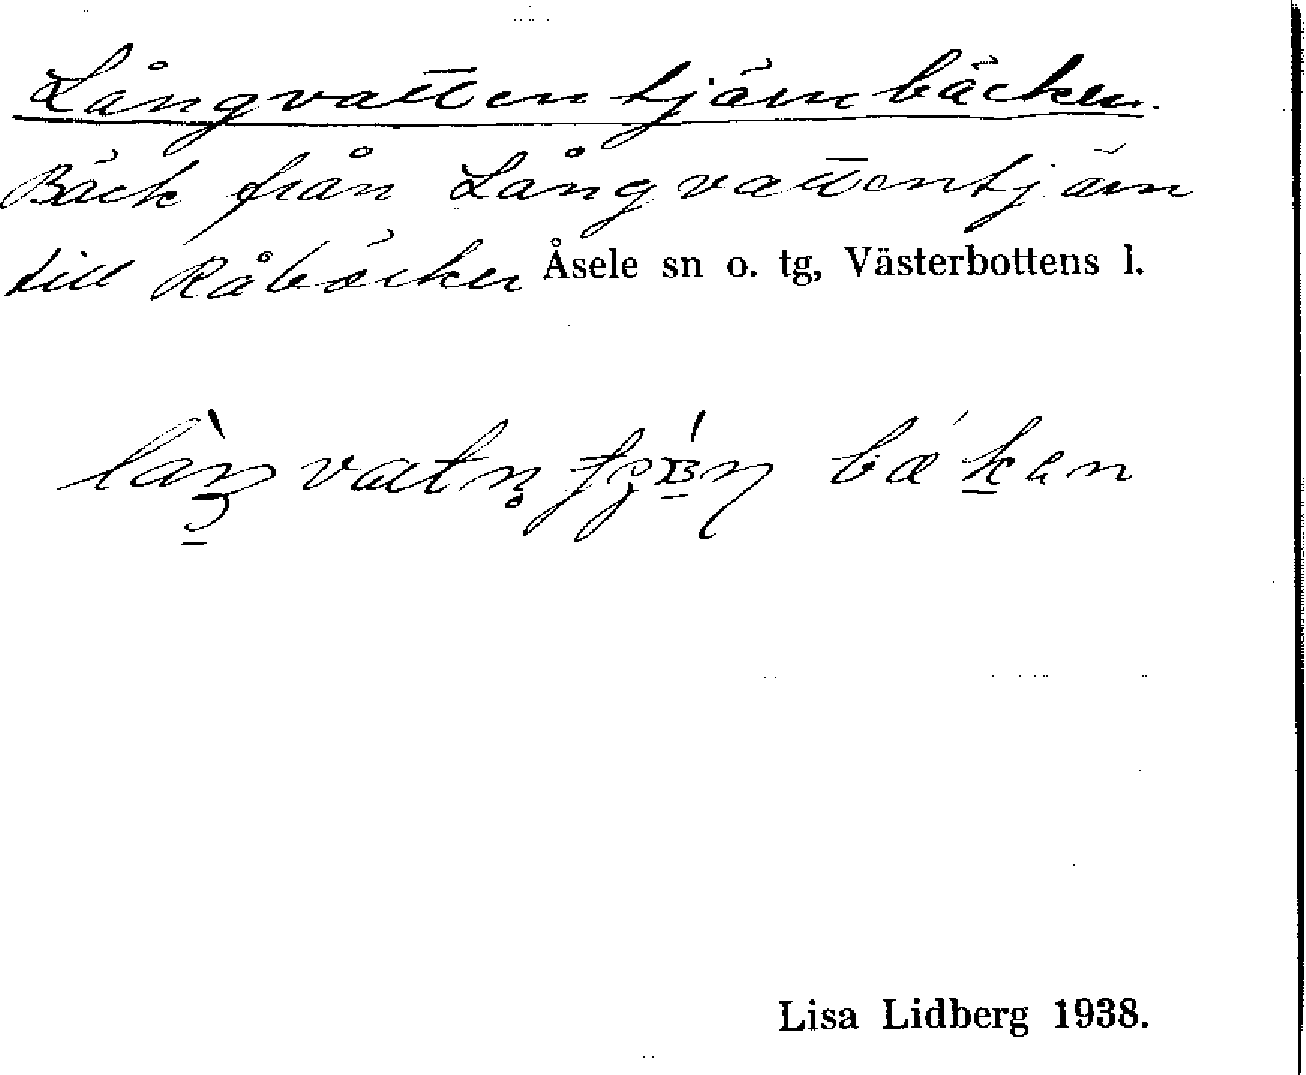 Långvattentjärnbäcken.
Bäck från Långvattentjärn
till Råbäcken Åsele sn o. tg, Västerbottens l.
Lisa Lidberg 1938.